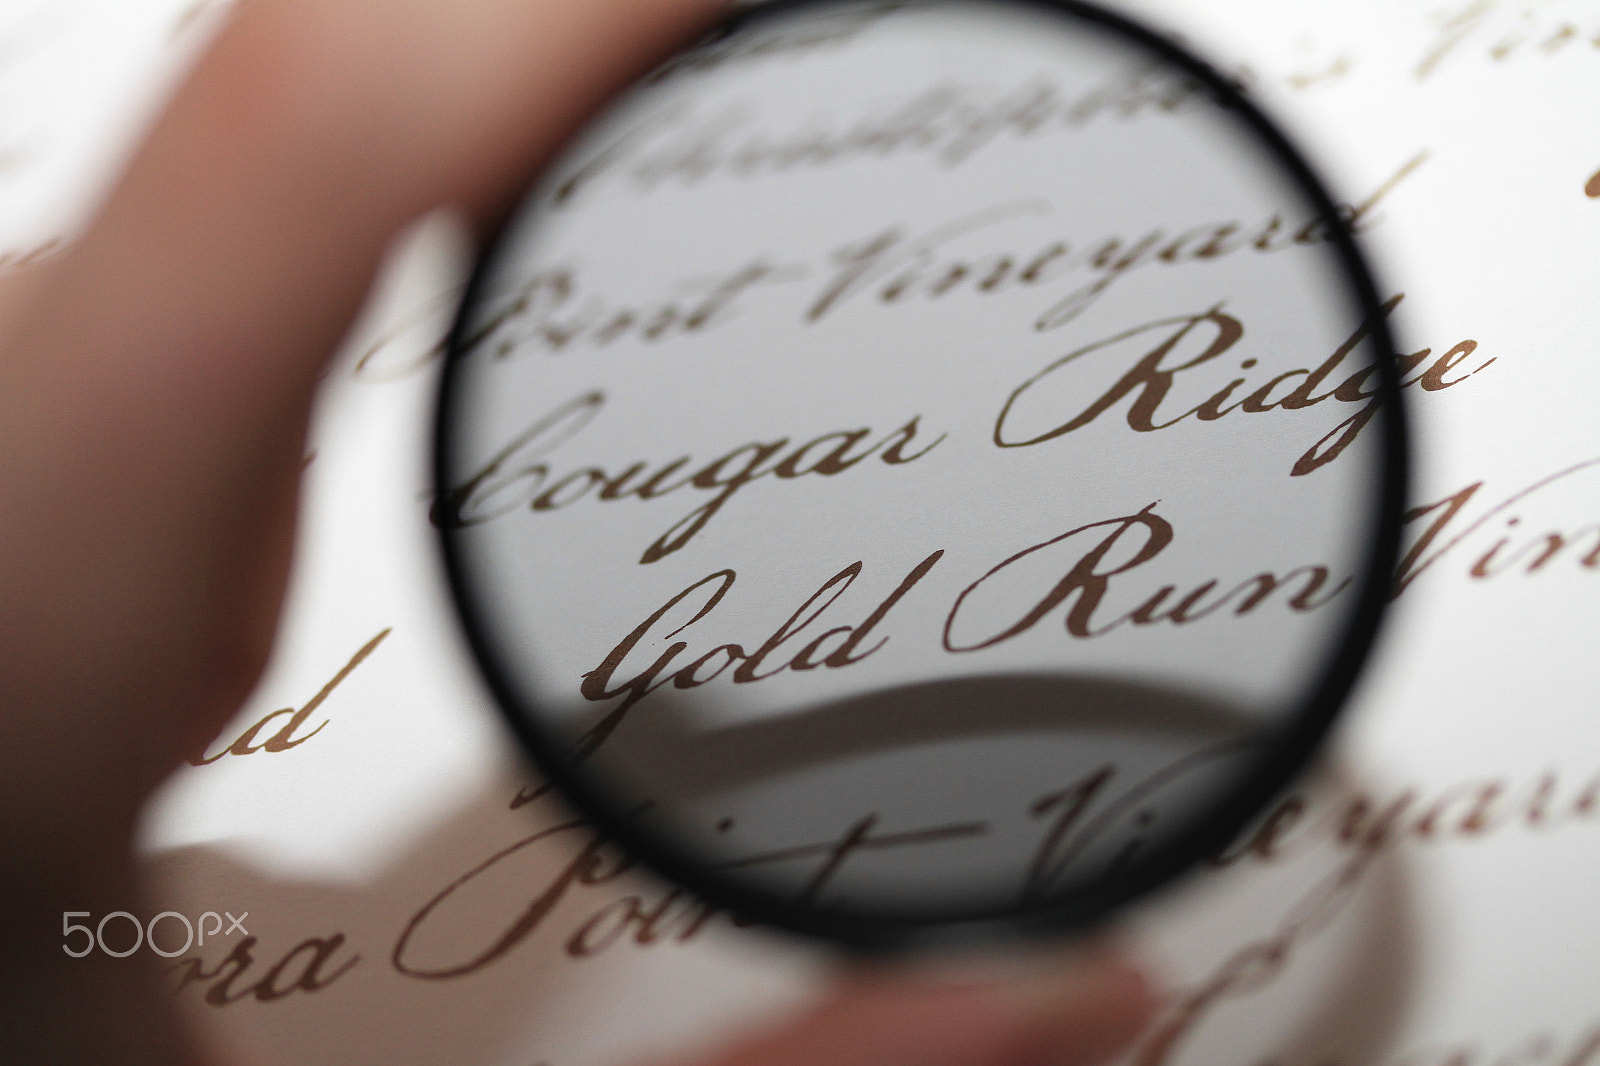 Point Vineyard
Cougar Ridge
Gold Run Vin
d
ora Point Vineyard
500px